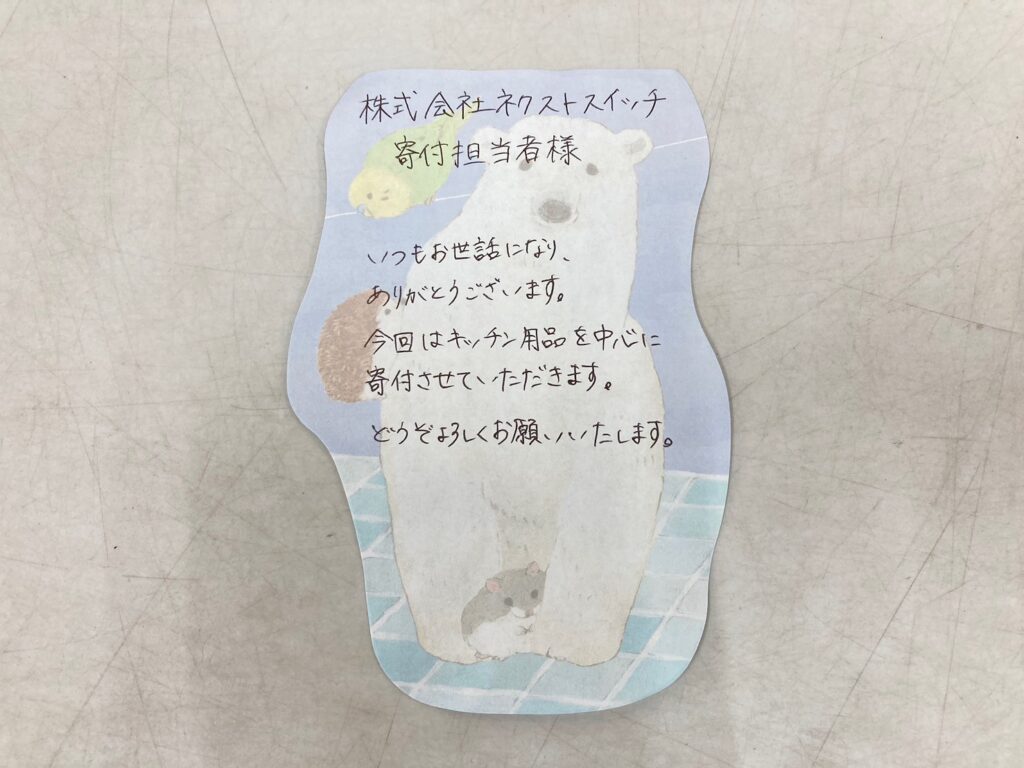 株式会社ネクストスイッチ
寄付担当者様
いつもお世話になり、
ありがとうございます。
今回はキッチン用品を中心に
寄付させていただきます。
どうぞよろしくお願いいたします。